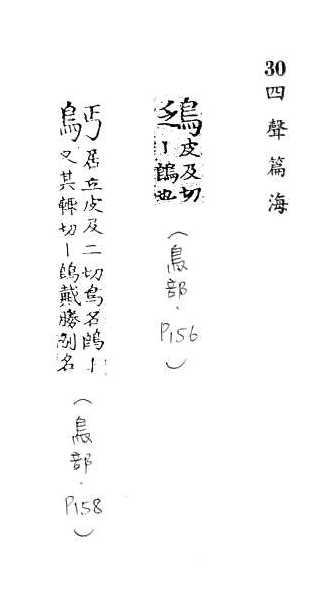 30四聲篇海
鴔皮及切
丨鵖也
(鳥部.P156)
居立皮及二切鳥名鵖丨
又其輒切丨鵖戴勝別名
(鳥部.P158)